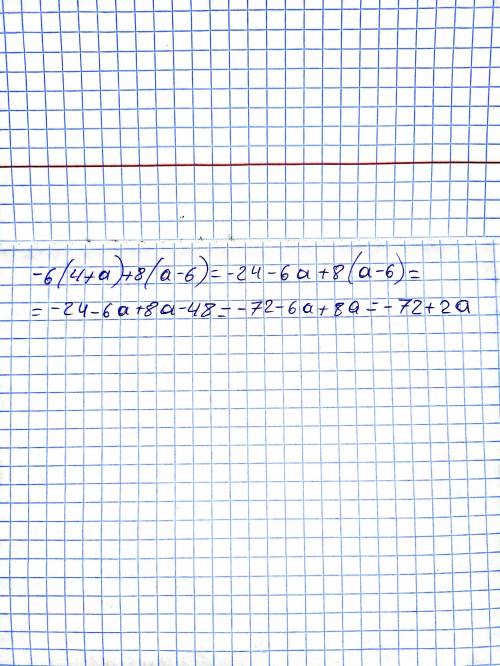 -6(4+a)+8(a-6)=-24-6a+8(a-6)=
=-24-6a+8a-48=-72-6a+8a=-72+2a